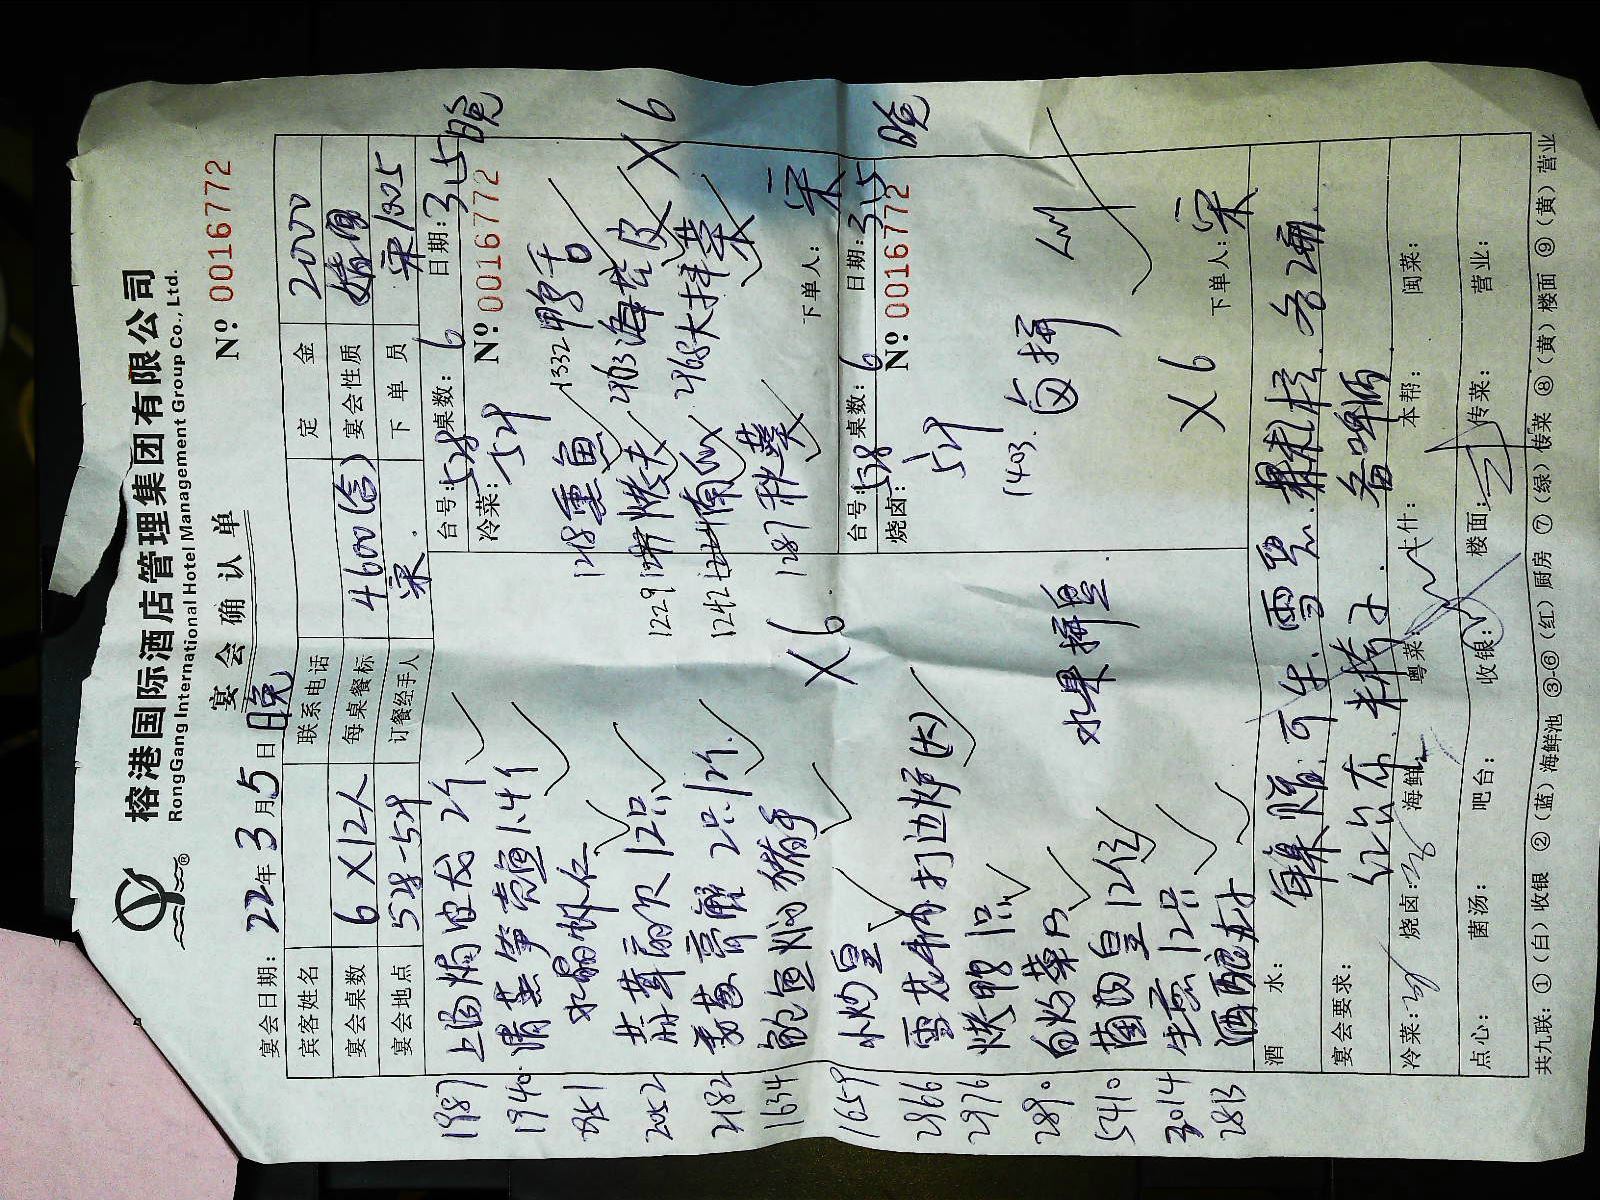 榕港国际酒店管理集团有限公司
RongGang International Hotel Management Group Co., Ltd.
宴会确认单
№: 0016772
宴会日期: 22年3月5日 晚
宾客姓名 联系电话 定金 2000
宴会桌数 6X12人 每桌餐标 4600(含) 宴会性质 婚宴
宴会地点 528-529 订餐经手人 宋 下单员 宋1805
1987 上汤焗波龙 2个
1940 清蒸笋壳鱼 1.4个
水晶虾仁
2052 12只
2182 2只/个
1634 鲍鱼焖猪手
1659 小炒皇
2866 雪花 打边炉(大)
2976 烤鸭 1只
2890 白灼菜心
5410 菌汤皇 12位
3014 生 12只
2813 酒酿
X6
水果拼盘
台号: 528 桌数: 6 日期: 3.5 晚
冷菜: 529 №: 0016772
1218 熏鱼 1332 鸭舌
1229 烤夫 2463 海蜇皮
1242 南瓜 2468 大拌菜
1287 秋葵
X6
下单人: 宋
台号: 528 桌数: 6 日期: 3.5 晚
烧卤: 529 №: 0016772
1403. 卤拼
X6
下单人: 宋
酒水: 每桌赠 可乐. 雪碧. 各2瓶
宴会要求: 红台布.
冷菜: 烧卤: 海鲜: 粤菜: 上什: 本帮: 闽菜:
点心: 菌汤: 吧台: 收银: 楼面: 传菜: 营业:
共九联: ①(白)收银 ②(蓝)海鲜池 ③-⑥(红)厨房 ⑦(绿)传菜 ⑧(黄)楼面 ⑨(黄)营业